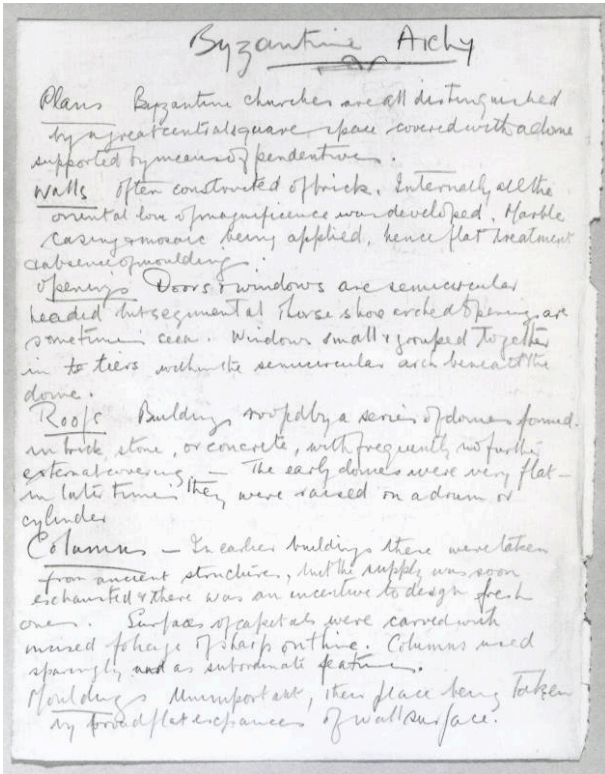 Byzantine Archy
Plans Byzantine churches are all distinguished
by a great central square space covered with a dome
supported by means of pendentives.
Walls often constructed of brick. Internally all the
oriental love of magnificence was developed. Marble
casing & mosaic being applied, hence flat treatment
& absence of moulding.
Openings Doors & windows are semicircular
headed but segmental & horse shoe arched openings are
sometimes seen. Windows small & grouped together
in tiers within the semicircular arch beneath the
dome.
Roofs Buildings roofed by a series of domes formed
in brick, stone, or concrete, with frequently no further
external covering — The early domes were very flat —
in later times they were raised on a drum or
cylinder
Columns — In earlier buildings these were taken
from ancient structures, but the supply was soon
exhausted & there was an incentive to design fresh
ones. Surfaces of capitals were carved with
incised foliage of sharp outline. Columns used
sparingly and as subordinate features.
Mouldings Unimportant, their place being taken
by broad flat expanses of wall surface.